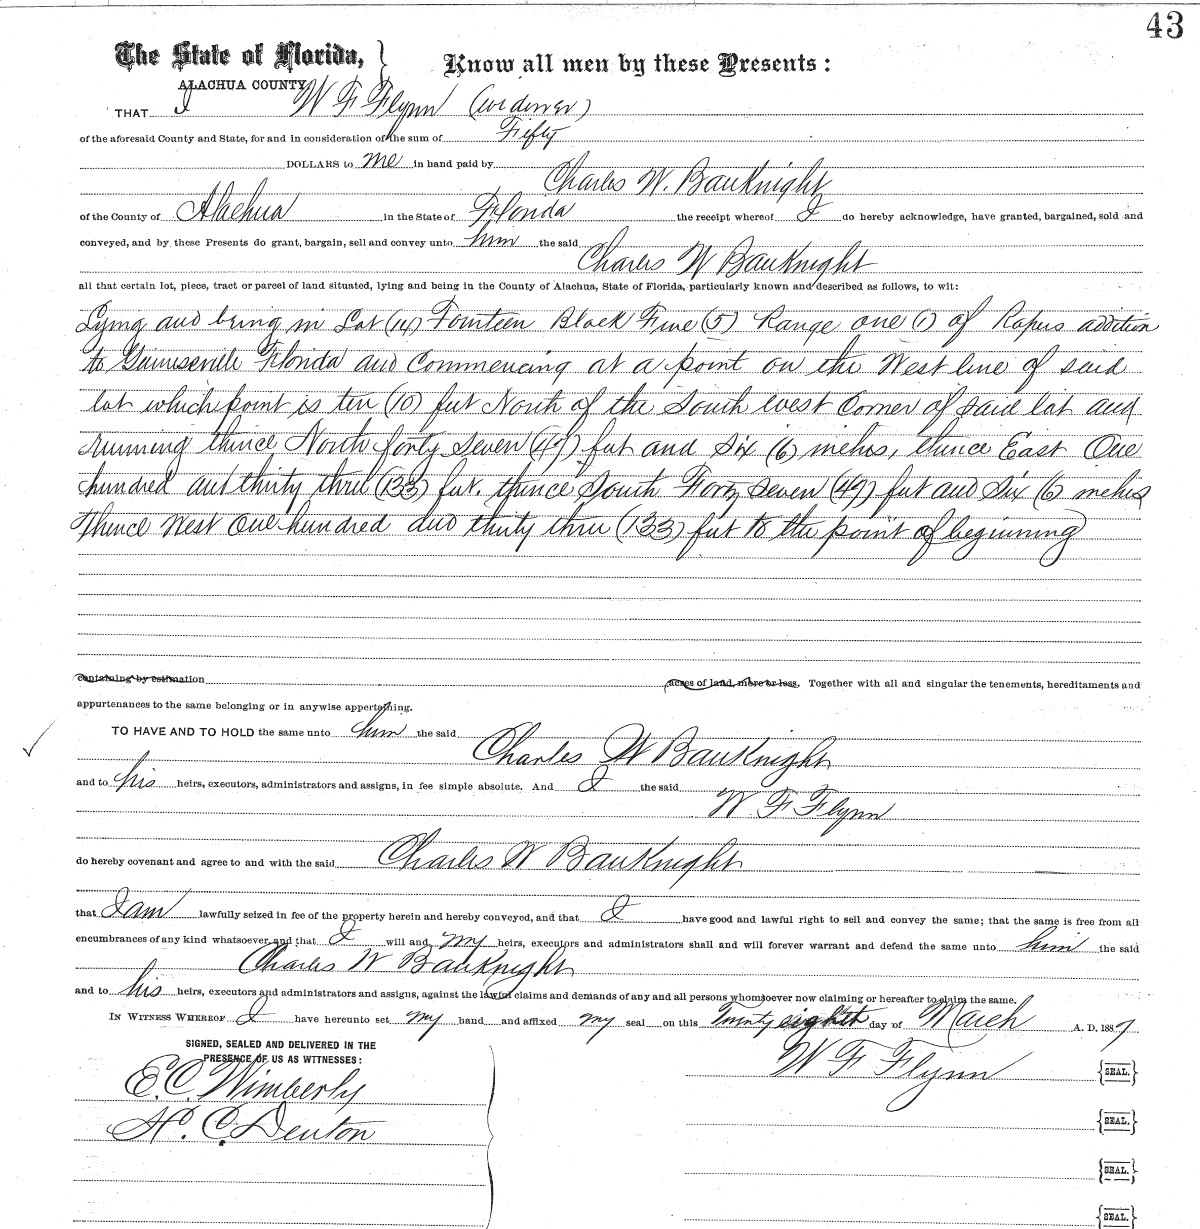 43
The State of Florida, } Know all men by these Presents:
ALACHUA COUNTY
THAT I W F Flynn (widower)
of the aforesaid County and State, for and in consideration of the sum of Fifty
DOLLARS to me in hand paid by
Charles W. Bauknight
of the County of Alachua in the State of Florida the receipt whereof I do hereby acknowledge, have granted, bargained, sold and
conveyed, and by these Presents do grant, bargain, sell and convey unto him the said
Charles W Bauknight
all that certain lot, piece, tract or parcel of land situated, lying and being in the County of Alachua, State of Florida, particularly known and described as follows, to wit:
Lying and being in Lot (14) Fourteen Block Five (5) Range one (1) of Ropers addition
to Gainesville Florida and Commencing at a point on the West line of said
lot which point is ten (10) feet North of the South west Corner of said lot and
running thence North forty seven (47) feet and six (6) inches, thence East One
hundred and thirty three (133) feet. thence South Forty seven (47) feet and six (6) inches
thence West One hundred and thirty three (133) feet to the point of beginning
containing by estimation acres of land, more or less. Together with all and singular the tenements, hereditaments and
appurtenances to the same belonging or in anywise appertaining.
TO HAVE AND TO HOLD the same unto him the said
Charles W Bauknight
and to his heirs, executors, administrators and assigns, in fee simple absolute. And I the said
W F Flynn
do hereby covenant and agree to and with the said Charles W Bauknight
that I am lawfully seized in fee of the property herein and hereby conveyed, and that I have good and lawful right to sell and convey the same; that the same is free from all
encumbrances of any kind whatsoever, and that I will and my heirs, executors and administrators shall and will forever warrant and defend the same unto him the said
Charles W Bauknight
and to his heirs, executors and administrators and assigns, against the lawful claims and demands of any and all persons whomsoever now claiming or hereafter to claim the same.
IN WITNESS WHEREOF I have hereunto set my hand and affixed my seal on this Twenty eighth day of March A. D. 1887
SIGNED, SEALED AND DELIVERED IN THE
PRESENCE OF US AS WITNESSES:
W F Flynn {SEAL.}
E. C. Wimberly
H. C. Denton
{SEAL.}
{SEAL.}
{SEAL.}